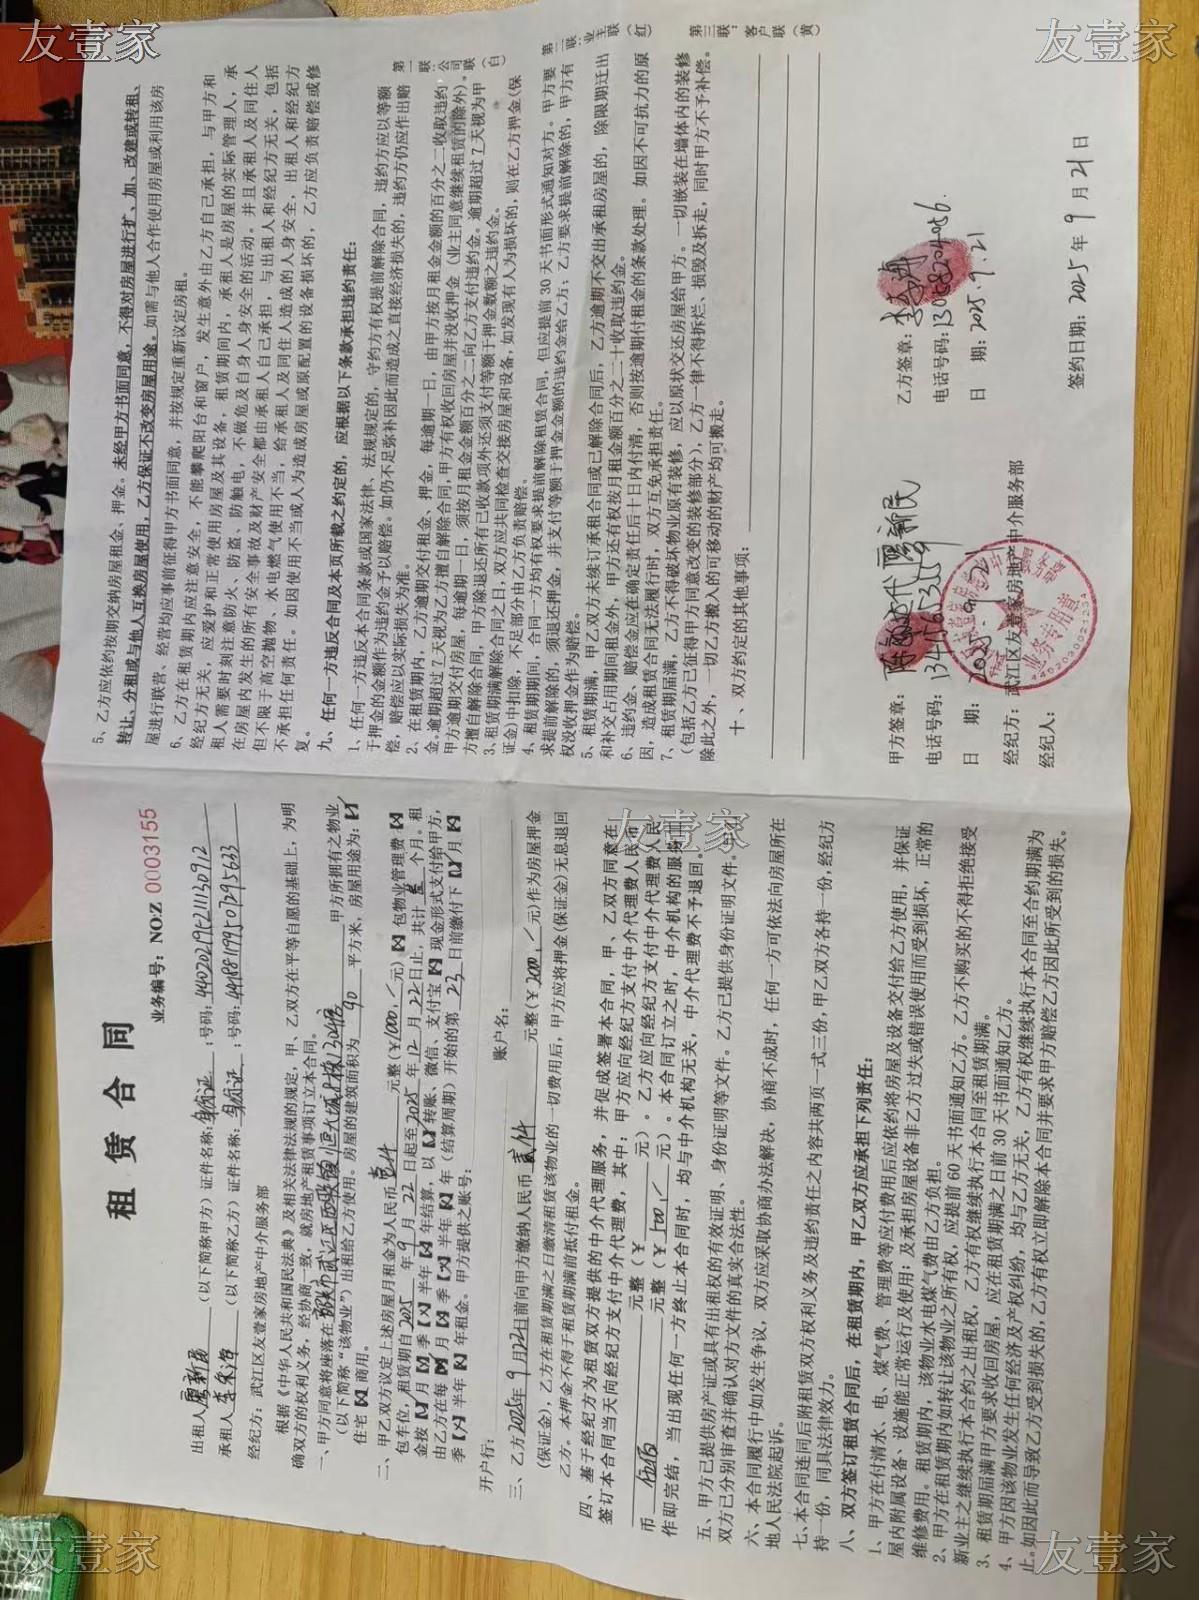 租赁合同
业务编号：NO:Z 0003155
出租人廖新民（以下简称甲方）证件名称：身份证；号码：
承租人（以下简称乙方）证件名称：身份证；号码：
经纪方：武江区友壹家房地产中介服务部
根据《中华人民共和国民法典》及相关法律法规的规定，甲、乙双方在平等自愿的基础上，为明
确双方的权利义务，经协商一致，就房地产租赁事项订立本合同。
一、甲方同意将座落在 甲方所拥有之物业
（以下简称“该物业”）出租给乙方使用。房屋的建筑面积为 90 平方米，房屋用途为：【✓】
住宅【×】商用。
二、甲乙双方议定上述房屋月租金为人民币 壹仟 元整（￥1000./元）【×】包物业管理费【×】
包车位，租赁期自 2025 年 9 月 22 日起至 2025 年 12 月 22 日止，共计 个月。租
金按【✓】月【×】季【×】半年【×】年结算，以【✓】转账、微信、支付宝【×】现金形式支付给甲方，
由乙方在每【✓】月【×】季【×】半年【×】年（结算周期）开始的第 23 日前缴付下【✓】月【×】
季【×】半年【×】年租金。甲方提供之账号：
开户行： 账户名：
三、乙方 2025年 9 月 22 日前向甲方缴纳人民币 贰仟 元整（￥2000./元）作为房屋押金
（保证金），乙方在租赁期满之日缴清租赁该物业的一切费用后，甲方应将押金（保证金）无息退回
乙方。本押金不得于租赁期满前抵付租金。
四、基于经纪方为租赁双方提供的中介代理服务，并促成签署本合同，甲、乙双方同意在
签订本合同当天向经纪方支付中介代理费，其中：甲方应向经纪方支付中介代理费人民币
元整（￥ 元）。乙方应向经纪方支付中介代理费人民
币 伍佰 元整（￥ 500./ 元）。本合同订立之时，中介机构的服务工
作即完结，当出现任何一方终止本合同时，均与中介机构无关，中介代理费不予退回。
五、甲方已提供房产证或具有出租权的有效证明、身份证明等文件。乙方已提供身份证明文件。甲乙
双方已分别审查并确认对方文件的真实合法性。
六、本合同履行中如发生争议，双方应采取协商办法解决，协商不成时，任何一方可依法向房屋所在
地人民法院起诉。
七、本合同连同后附租赁双方权利义务及违约责任之内容共两页一式三份，甲乙双方各持一份，经纪方
持一份，同具法律效力。
八、双方签订租赁合同后，在租赁期内，甲乙双方应承担下列责任：
1、甲方在付清水、电、煤气费、管理费等应付费用后应依约将房屋及设备交付给乙方使用，并保证
屋内附属设备、设施能正常运行及使用；及承担房屋设备非乙方过失或错误使用而受到损坏，正常的
维修费用。租赁期内，该物业水电煤气费由乙方负担。
2、甲方在租赁期内如转让该物业之所有权，应提前 60 天书面通知乙方。乙方不购买的不得拒绝接受
新业主之继续执行本合约之出租权，乙方有权继续执行本合同至租赁期满。
3、租赁期届满甲方要求收回房屋，应在租赁期满之日前 30 天书面通知乙方。
4、甲方因该物业发生任何经济及产权纠纷，均与乙方无关，乙方有权继续执行本合同至合约期满为
止。如因此而导致乙方受到损失的，乙方有权立即解除本合同并要求甲方赔偿乙方因此所受到的损失。
5、乙方应依约按期交纳房屋租金、押金。未经甲方书面同意，不得对房屋进行扩、加、改建或转租、
转让、分租或与他人互换房屋使用，乙方保证不改变房屋用途。如需与他人合作使用房屋或利用该房
屋进行联营、经营均应事前征得甲方书面同意，并按规定重新议定房租。
6、乙方在租赁期内应注意安全，不能攀爬阳台和窗户，发生意外由乙方自己承担，与甲方和
经纪方无关，应爱护和正常使用房屋及其设备，租赁期间内，承租人是房屋的实际管理人，承
租人需要时刻注意防火、防盗、防触电，不做危及自身人身安全的活动。并且承租人及同住人
在房屋内发生的所有安全事故及财产安全都由承租人自己承担，与出租人和经纪方无关，包括
但不限于高空抛物、水电燃气使用不当，给承租人及同住人造成的人身安全，出租人和经纪方
不承担任何责任。如因使用不当或人为造成房屋或原配置的设备损坏的，乙方应负责赔偿或修
复。
九、任何一方违反合同及本页所载之约定的，应根据以下条款承担违约责任：
1、任何一方违反本合同条款或国家法律、法规规定的，守约方有权提前解除合同，违约方应以等额
于押金的金额作为违约金予以赔偿。如仍不足弥补因此而造成之直接经济损失的，违约方仍应作出赔
偿，赔偿应以实际损失为准。
2、在租赁期内，乙方逾期交付租金、押金，每逾期一日，由甲方按月租金金额的百分之二收取违约
金，逾期超过 7 天视为乙方擅自解除合同，甲方有权收回房屋并没收押金（业主同意继续租赁的除外）。
甲方逾期交付房屋，每逾期一日，须按月租金金额百分之二向乙方支付违约金。逾期超过 7 天视为甲
方擅自解除合同，甲方除退还所有已收款项外还须支付等额于押金数额之违约金。
3、租赁期满解除合同之日，双方应共同检查交接房屋和设备，如发现有人为损坏的，则在乙方押金（保
证金）中扣除，不足部分由乙方负责赔偿。
4、租赁期期间，合同一方均有权要求提前解除租赁合同，但应提前 30 天书面形式通知对方。甲方要
求提前解除的，须退还押金，并支付等额于押金金额的违约金给乙方；乙方要求提前解除的，甲方有
权没收押金作为赔偿。
5、租赁期满，甲乙双方未续订承租合同或已解除合同后，乙方逾期不交出承租房屋的，除限期迁出
和补交占用期间租金外，甲方还有权按月租金额百分之二十收取违约金。
6、违约金、赔偿金应在确定责任后十日内付清，否则按逾期付租金的条款处理。如因不可抗力的原
因，造成租赁合同无法履行时，双方互免承担责任。
7、租赁期届满，乙方不得破坏物业原有装修，应以原状交还房屋给甲方。一切嵌装在墙体内的装修
（包括乙方已征得甲方同意改变的装修部分），乙方一律不得拆烂、损毁及拆走，同时甲方不予补偿。
除此之外，一切乙方搬入的可移动的财产均可搬走。
十、双方约定的其他事项：
甲方签章： 代 廖新民
乙方签章：
电话号码：
电话号码：
日 期： 2025.9.21
日 期：2025.9.21
经纪方：武江区友壹家房地产中介服务部
经纪人：
签约日期：2025 年 9 月 21 日
第一联：公司联（白）
第二联：业主联（红）
第三联：客户联（黄）
业务专用章
4402030021234
友壹家
友壹家
友壹家
友壹家
友壹家